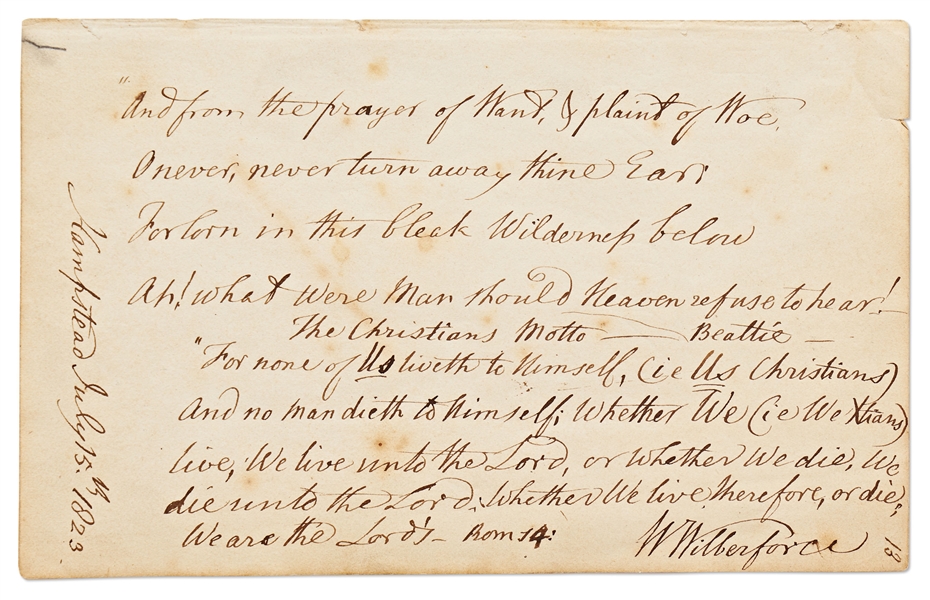 "And from the prayer of Want, & plaint of Woe,
O never, never turn away thine Ear;
Forlorn in this bleak Wilderness below
Ah! what were Man should Heaven refuse to hear!
The Christians Motto — Beattie —
"For none of Us liveth to Himself, (ie Us Christians)
And no man dieth to Himself; Whether We (ie We Xtians)
live, We live unto the Lord, or whether We die, We
die unto the Lord; Whether We live therefore, or die,
We are the Lord's — Rom 14:
W Wilberforce
13
Hampstead July 15.th 1823